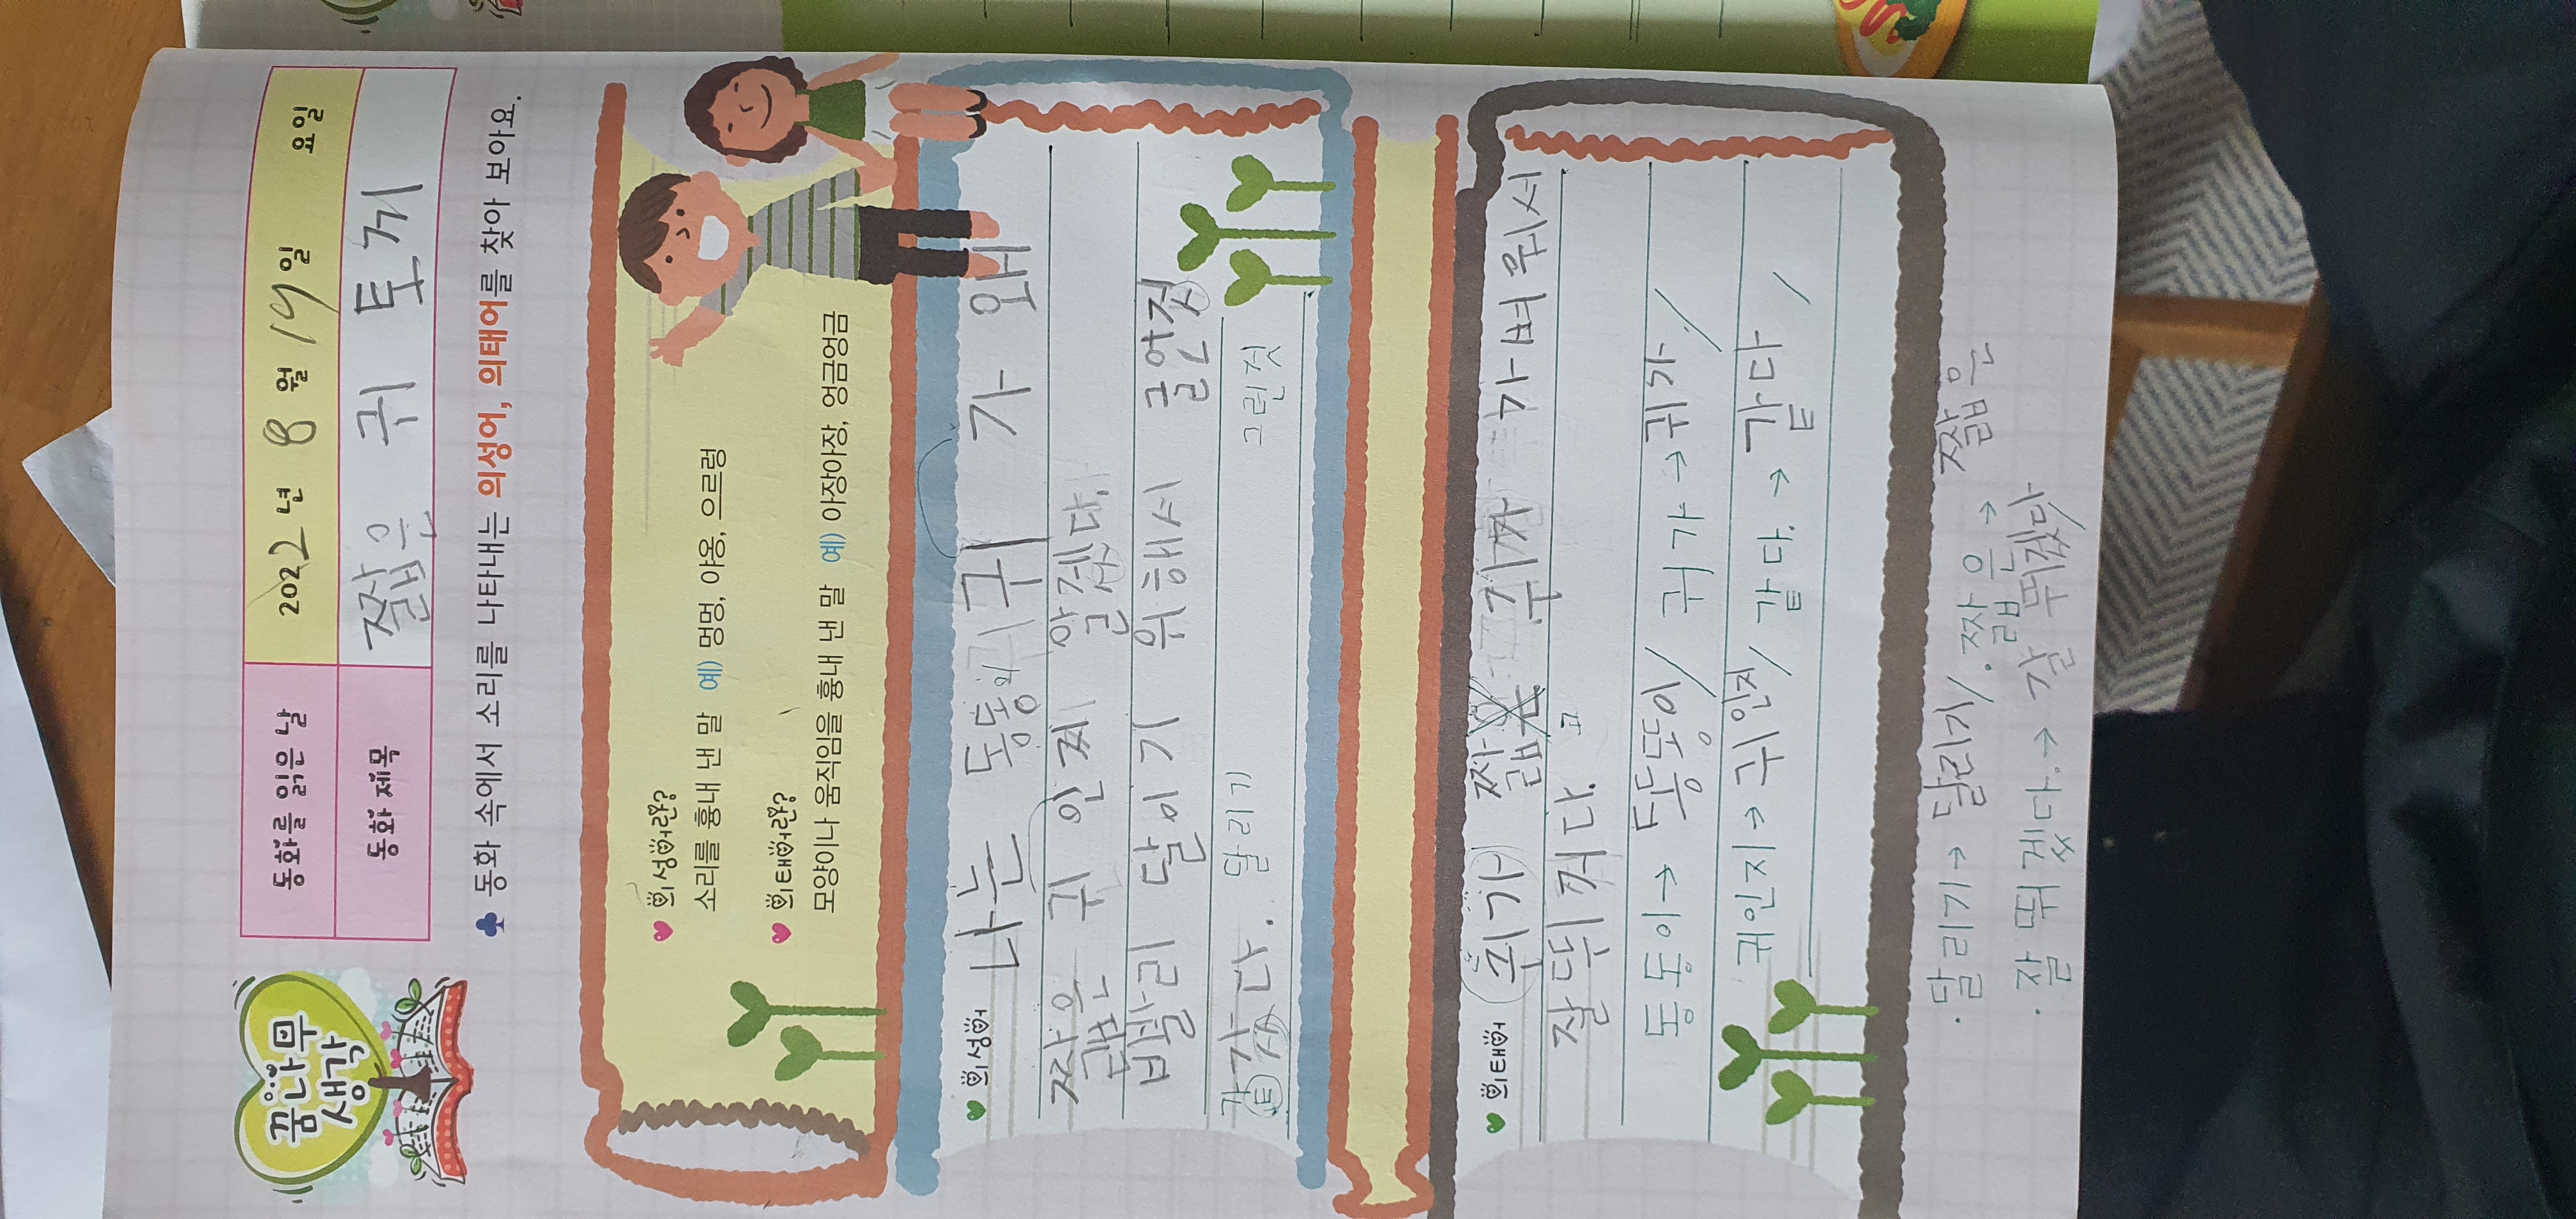 꿈나무
생각
동화를 읽은 날 2022 년 8 월 19 일 요일
동화 제목 짧은 귀 토끼
♣ 동화 속에서 소리를 나타내는 의성어, 의태어를 찾아 보아요.
♥ 의성어란?
소리를 흉내 낸 말 예) 멍멍, 야옹, 으르렁
♥ 의태어란?
모양이나 움직임을 흉내 낸 말 예) 아장아장, 엉금엉금
♥ 의성어 나는 동동이 귀 가 왜
짧은 귀 인찌 알겠다.
빨리 달이기 위해서 글언것
같 갔다. 달리기 그런것
♥ 의태어 귀가 짧은 귀가 가벼워서
고
잘뛰겨다.
동동이→ 똥똥이/ 귀가 →귀가/
귀인지→ 귀인지/ 같다. → 같다 /
·달리기→ 달리기/ ·짧은→ 짧은
·잘 뛰겠다.→ 잘 뛰겠다